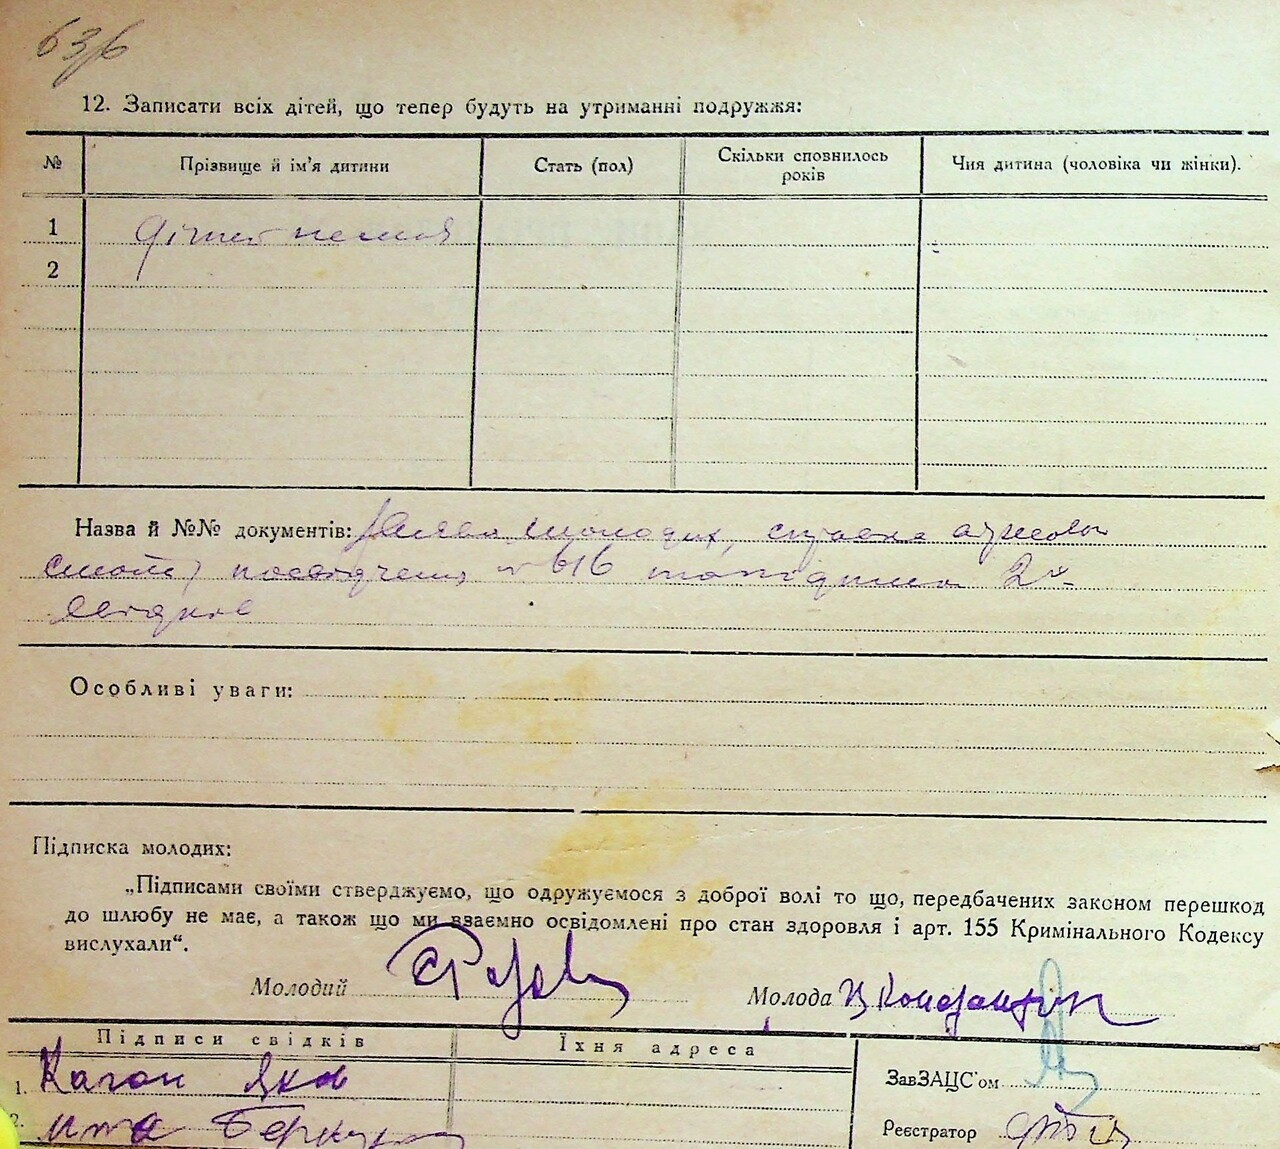 63б
12. Записати всіх дітей, що тепер будуть на утриманні подружжя:
№ Прізвище й ім'я дитини Стать (пол) Скільки сповнилось років Чия дитина (чоловіка чи жінки).
1 дітей немає
2
Назва й №№ документів: Заява молодих,
посвідчення № 616 2х
свідків
Особливі уваги:
Підписка молодих:
„Підписами своїми стверджуємо, що одружуємося з доброї волі то що, передбачених законом перешкод
до шлюбу не має, а також що ми взаємно освідомлені про стан здоровля і арт. 155 Кримінального Кодексу
вислухали“.
Молодий Молода
Підписи свідків Їхня адреса
1. Каган ЗавЗАЦС'ом
2. Реєстратор